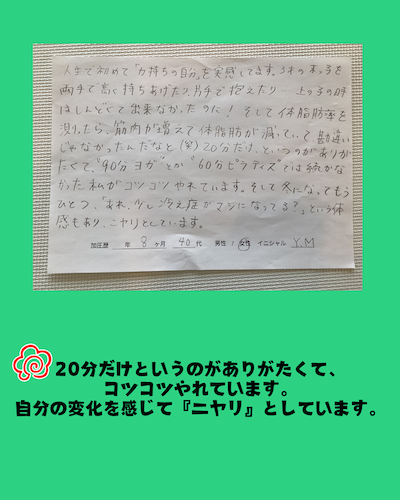 人生で初めて「力持ちの自分」を実感してます。3才の末っ子を
両手で高く持ちあげたり、片手で抱えたり… 上の子の時
はしんどくて出来なかったのに！ そして体脂肪率を
測ったら、筋肉が増えて体脂肪が減っていて勘違い
じゃなかったんだなと(笑) 20分だけ、というのがありが
たくて、"90分ヨガ"とか"60分ピラティス"では続かな
かった私がコツコツやれています。そして冬になってもう
ひとつ、「あれ、少し冷え症がマシになってる？」という体
感もあり、ニヤリとしています。
加圧歴 年 8 ヶ月 40 代 男性 / 女性 イニシャル Y.M
20分だけというのがありがたくて、
コツコツやれています。
自分の変化を感じて『ニヤリ』としています。